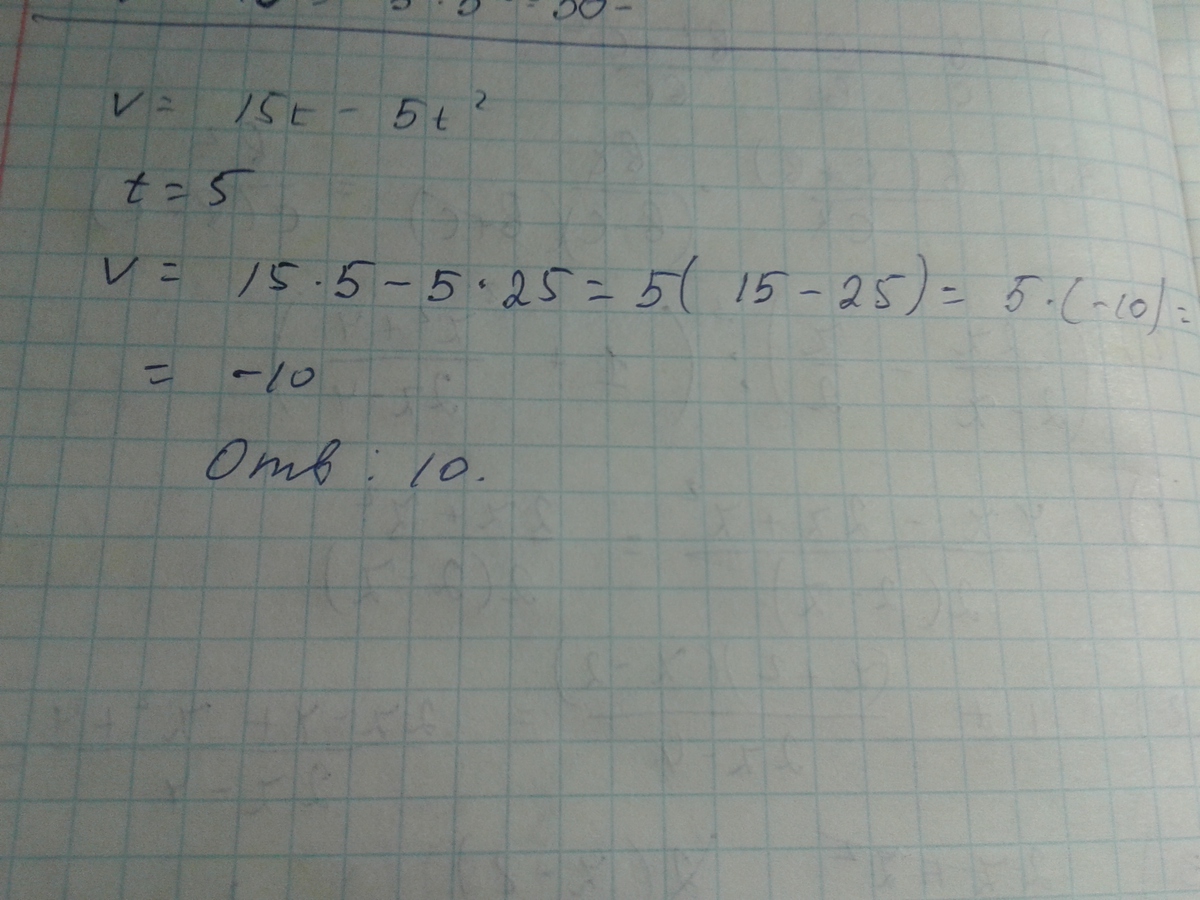 v = 15t - 5t²
t = 5
v = 15·5 - 5·25 = 5( 15 - 25) = 5·(-10) =
= -10
Отв: 10.